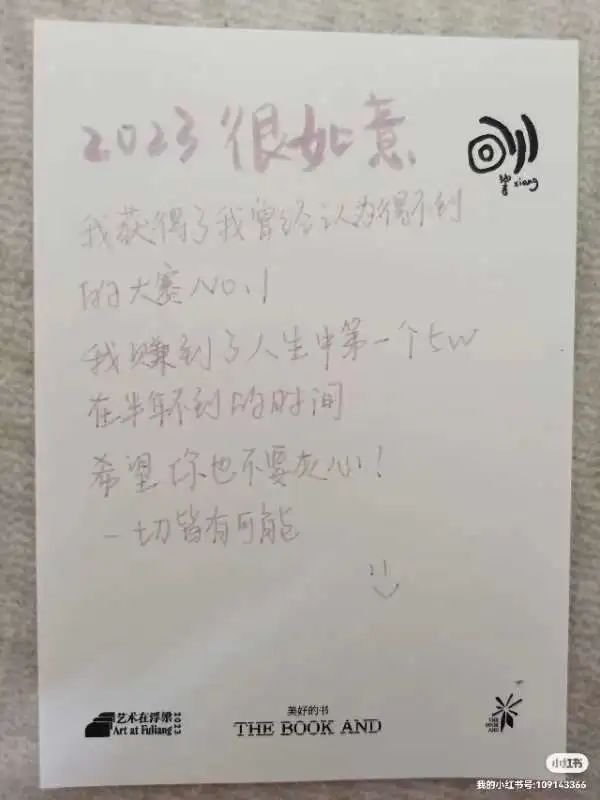 2023很如意
xiang
我获得了我曾经认为得不到
的大赛NO.1
我赚到了人生中第一个5W
在半年不到的时间
希望你也不要灰心！
一切皆有可能
艺术在浮梁 2023
Art at Fuliang
美好的书
THE BOOK AND
THE BOOK AND
小红书
我的小红书号:109143366